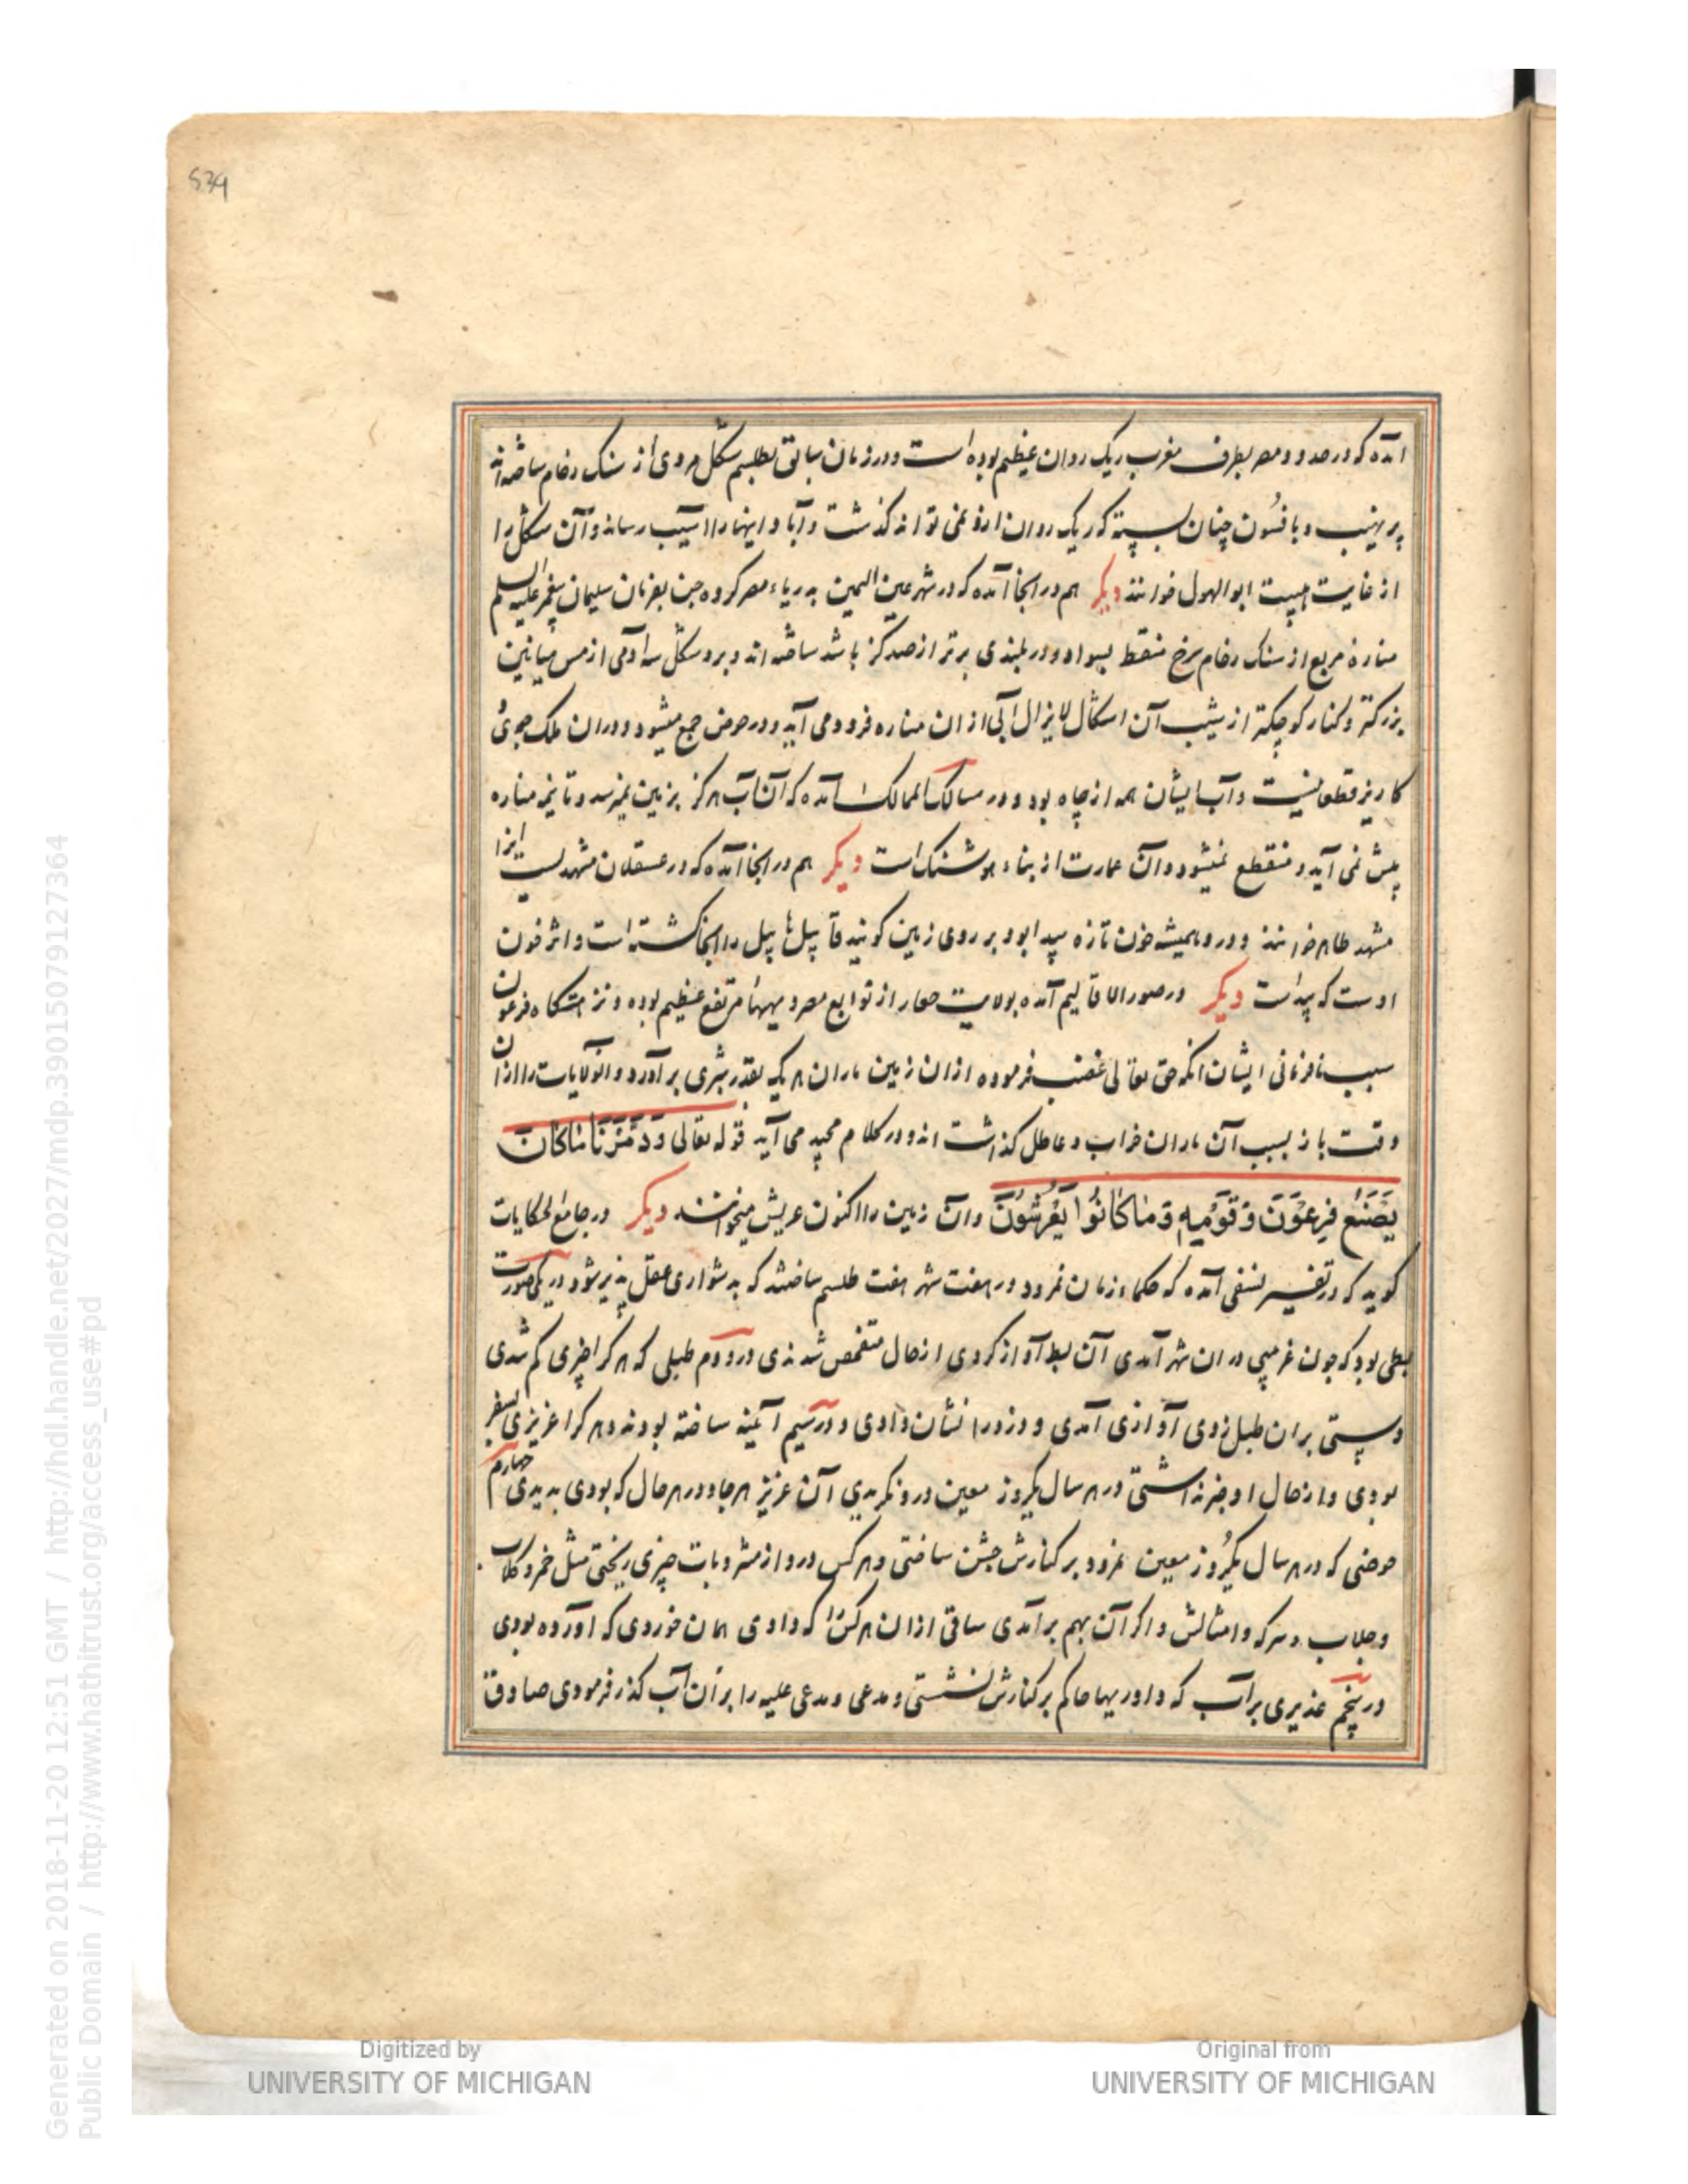 539
آمده که در حدود مصر بطرف مغرب ریک روان عظیم بوده است و در زمان سابق بطلسم شکل مردی از سنک رخام ساخته‌اند
پر مهیب و بافسون چنان بسته که ریک روان ازو نمی تواند گذشت و آبادانیها را آسیب رساند و آن شکل را
از غایت هیبت ابو الهول خوانند دیکر هم در انجا آمده که در شهر عین الیمین بدریاء مصر کروه جن بفرمان سلیمان پیغمبر علیه السلم
مناره مربع از سنک رخام سرخ منقط بسواد و در بلندی برتر از صد کز باشد ساخته اند و برو شکل سه آدمی از مس میانین
بزرکتر و کنار کوچکتر از شیب آن اشکال لایزال آبی از ان مناره فرود می آید و در حوض جمع میشود و در ان ملک جوی
کاریز قطعا نیست و آب ایشان همه از چاه بود و در مسالک الممالک آمده که آن آب هرکز بزمین نمیرسد و تا نیمه مناره
پیش نمی آید و منقطع نمیشود و آن عمارت از بناء هوشنک است دیکر هم در انجا آمده که در عسقلان مشهدیست انرا
مشهد طاهر خوانند و در و همیشه خون تازه پیدا بود بر روی زمین کویند قابیل هابیل را انجا کشته است و اثر خون
اوست که پیداست دیکر در صور الاقالیم آمده بولایت حفار از توابع مصر دیهها مرتفع عظیم بوده و نزهتکاه فرعون
سبب نافرمانی ایشان انکه حق تعالی غضب فرموده از ان زمین ماران هر یک بقدر شبری بر آورد و انولایات را از ان
وقت باز بسبب آن ماران خراب و عاطل کذاشت اند و در کلام مجید می آید قوله تعالی وَدَمَّرْنَا مَا کَانَ
یَصْنَعُ فِرْعَوْنَ وَقَوْمِهِ وَمَا کَانُوا یَعْرِشُونَ و آن زمین را اکنون عریش میخوانند دیکر در جامع الحکایات
کوید که در تفسیر نسفی آمده که حکماء زمان نمرود در هفت شهر هفت طلسم ساختند که بدشواری عقل پذیر شود در یکی صورت
بطی بود که چون غریبی در ان شهر آمدی آن بط آواز کردی از حال متفحص شدندی در دوم طبلی که هر کرا چیزی کم شدی
دستی بر ان طبل زدی آوازی آمدی و دزد را نشان دادی و در سیم آئینه ساخته بودند و هر کرا عزیزی بسفر
بودی و از حال او خبر نداشتی در هر سال یکروز معین درو نکریدی آن عزیز هر جا و در هر حال که بودی بدیدی چهارم
حوضی که در هر سال یکروز معین نمرود بر کنارش جشن ساختی و هر کس درو از مشروبات چیزی ریختی مثل خمر و کلاب
و جلاب و سرکه و امثالش و اکر آن بهم بر آمدی ساقی از ان هر کس را که دادی همان خوردی که آورده بودی
در پنجم غدیری بر آب که داوریها حاکم بر کنارش نشستی و مدعی و مدعی علیه را بر ان آب کذر فرمودی صادق
Digitized by
UNIVERSITY OF MICHIGAN
Original from
UNIVERSITY OF MICHIGAN
Generated on 2018-11-20 12:51 GMT / http://hdl.handle.net/2027/mdp.39015079127364
Public Domain / http://www.hathitrust.org/access_use#pd